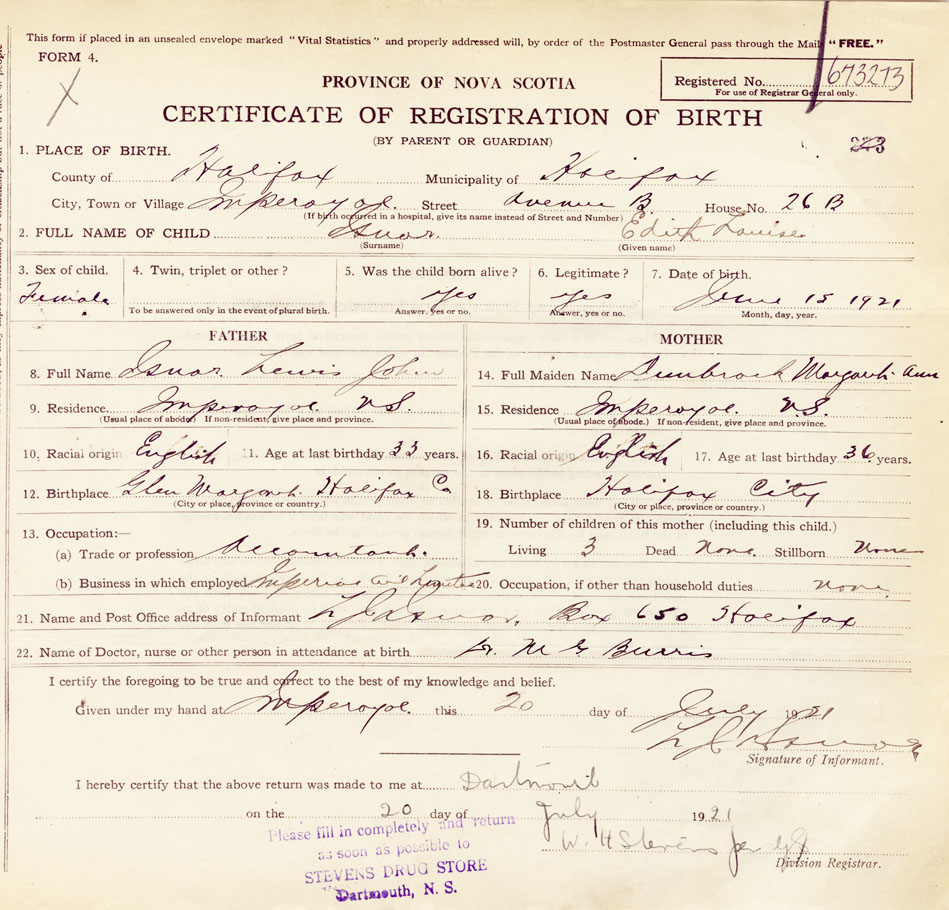 This form if placed in an unsealed envelope marked "Vital Statistics" and properly addressed will, by order of the Postmaster General pass through the Mail "FREE."
FORM 4.
Registered No. 673273
For use of Registrar General only.
PROVINCE OF NOVA SCOTIA
CERTIFICATE OF REGISTRATION OF BIRTH
(BY PARENT OR GUARDIAN)
1. PLACE OF BIRTH.
County of Halifax Municipality of Halifax
City, Town or Village Imperoyal Street Avenue B. House No. 26 B
(If birth occurred in a hospital, give its name instead of Street and Number)
2. FULL NAME OF CHILD Isnor. Edith Louise
(Surname) (Given name)
3. Sex of child. 4. Twin, triplet or other? 5. Was the child born alive? 6. Legitimate? 7. Date of birth.
Female yes yes June 15 1921
To be answered only in the event of plural birth. Answer, yes or no. Answer, yes or no. Month, day, year.
FATHER MOTHER
8. Full Name Isnor. Lewis John 14. Full Maiden Name Dunbrack Margaret Ann
9. Residence Imperoyal. N.S. 15. Residence Imperoyal. N.S.
(Usual place of abode.) If non-resident, give place and province. (Usual place of abode.) If non-resident, give place and province.
10. Racial origin English 11. Age at last birthday 33 years. 16. Racial origin English 17. Age at last birthday 36 years.
12. Birthplace Glen Margaret. Halifax Co 18. Birthplace Halifax City
(City or place, province or country.) (City or place, province or country.)
13. Occupation:— 19. Number of children of this mother (including this child.)
(a) Trade or profession Accountant. Living 3 Dead None. Stillborn None
(b) Business in which employed Imperial Oil Limited 20. Occupation, if other than household duties none.
21. Name and Post Office address of Informant L J Isnor, Box 650 Halifax
22. Name of Doctor, nurse or other person in attendance at birth Dr. M G Burris
I certify the foregoing to be true and correct to the best of my knowledge and belief.
Given under my hand at Imperoyal. this 20 day of July 1921
L J Isnor
Signature of Informant.
I hereby certify that the above return was made to me at Dartmouth
on the 20 day of July 1921
W. H Stevens
Division Registrar.
Please fill in completely and return
as soon as possible to
STEVENS DRUG STORE
Dartmouth, N. S.